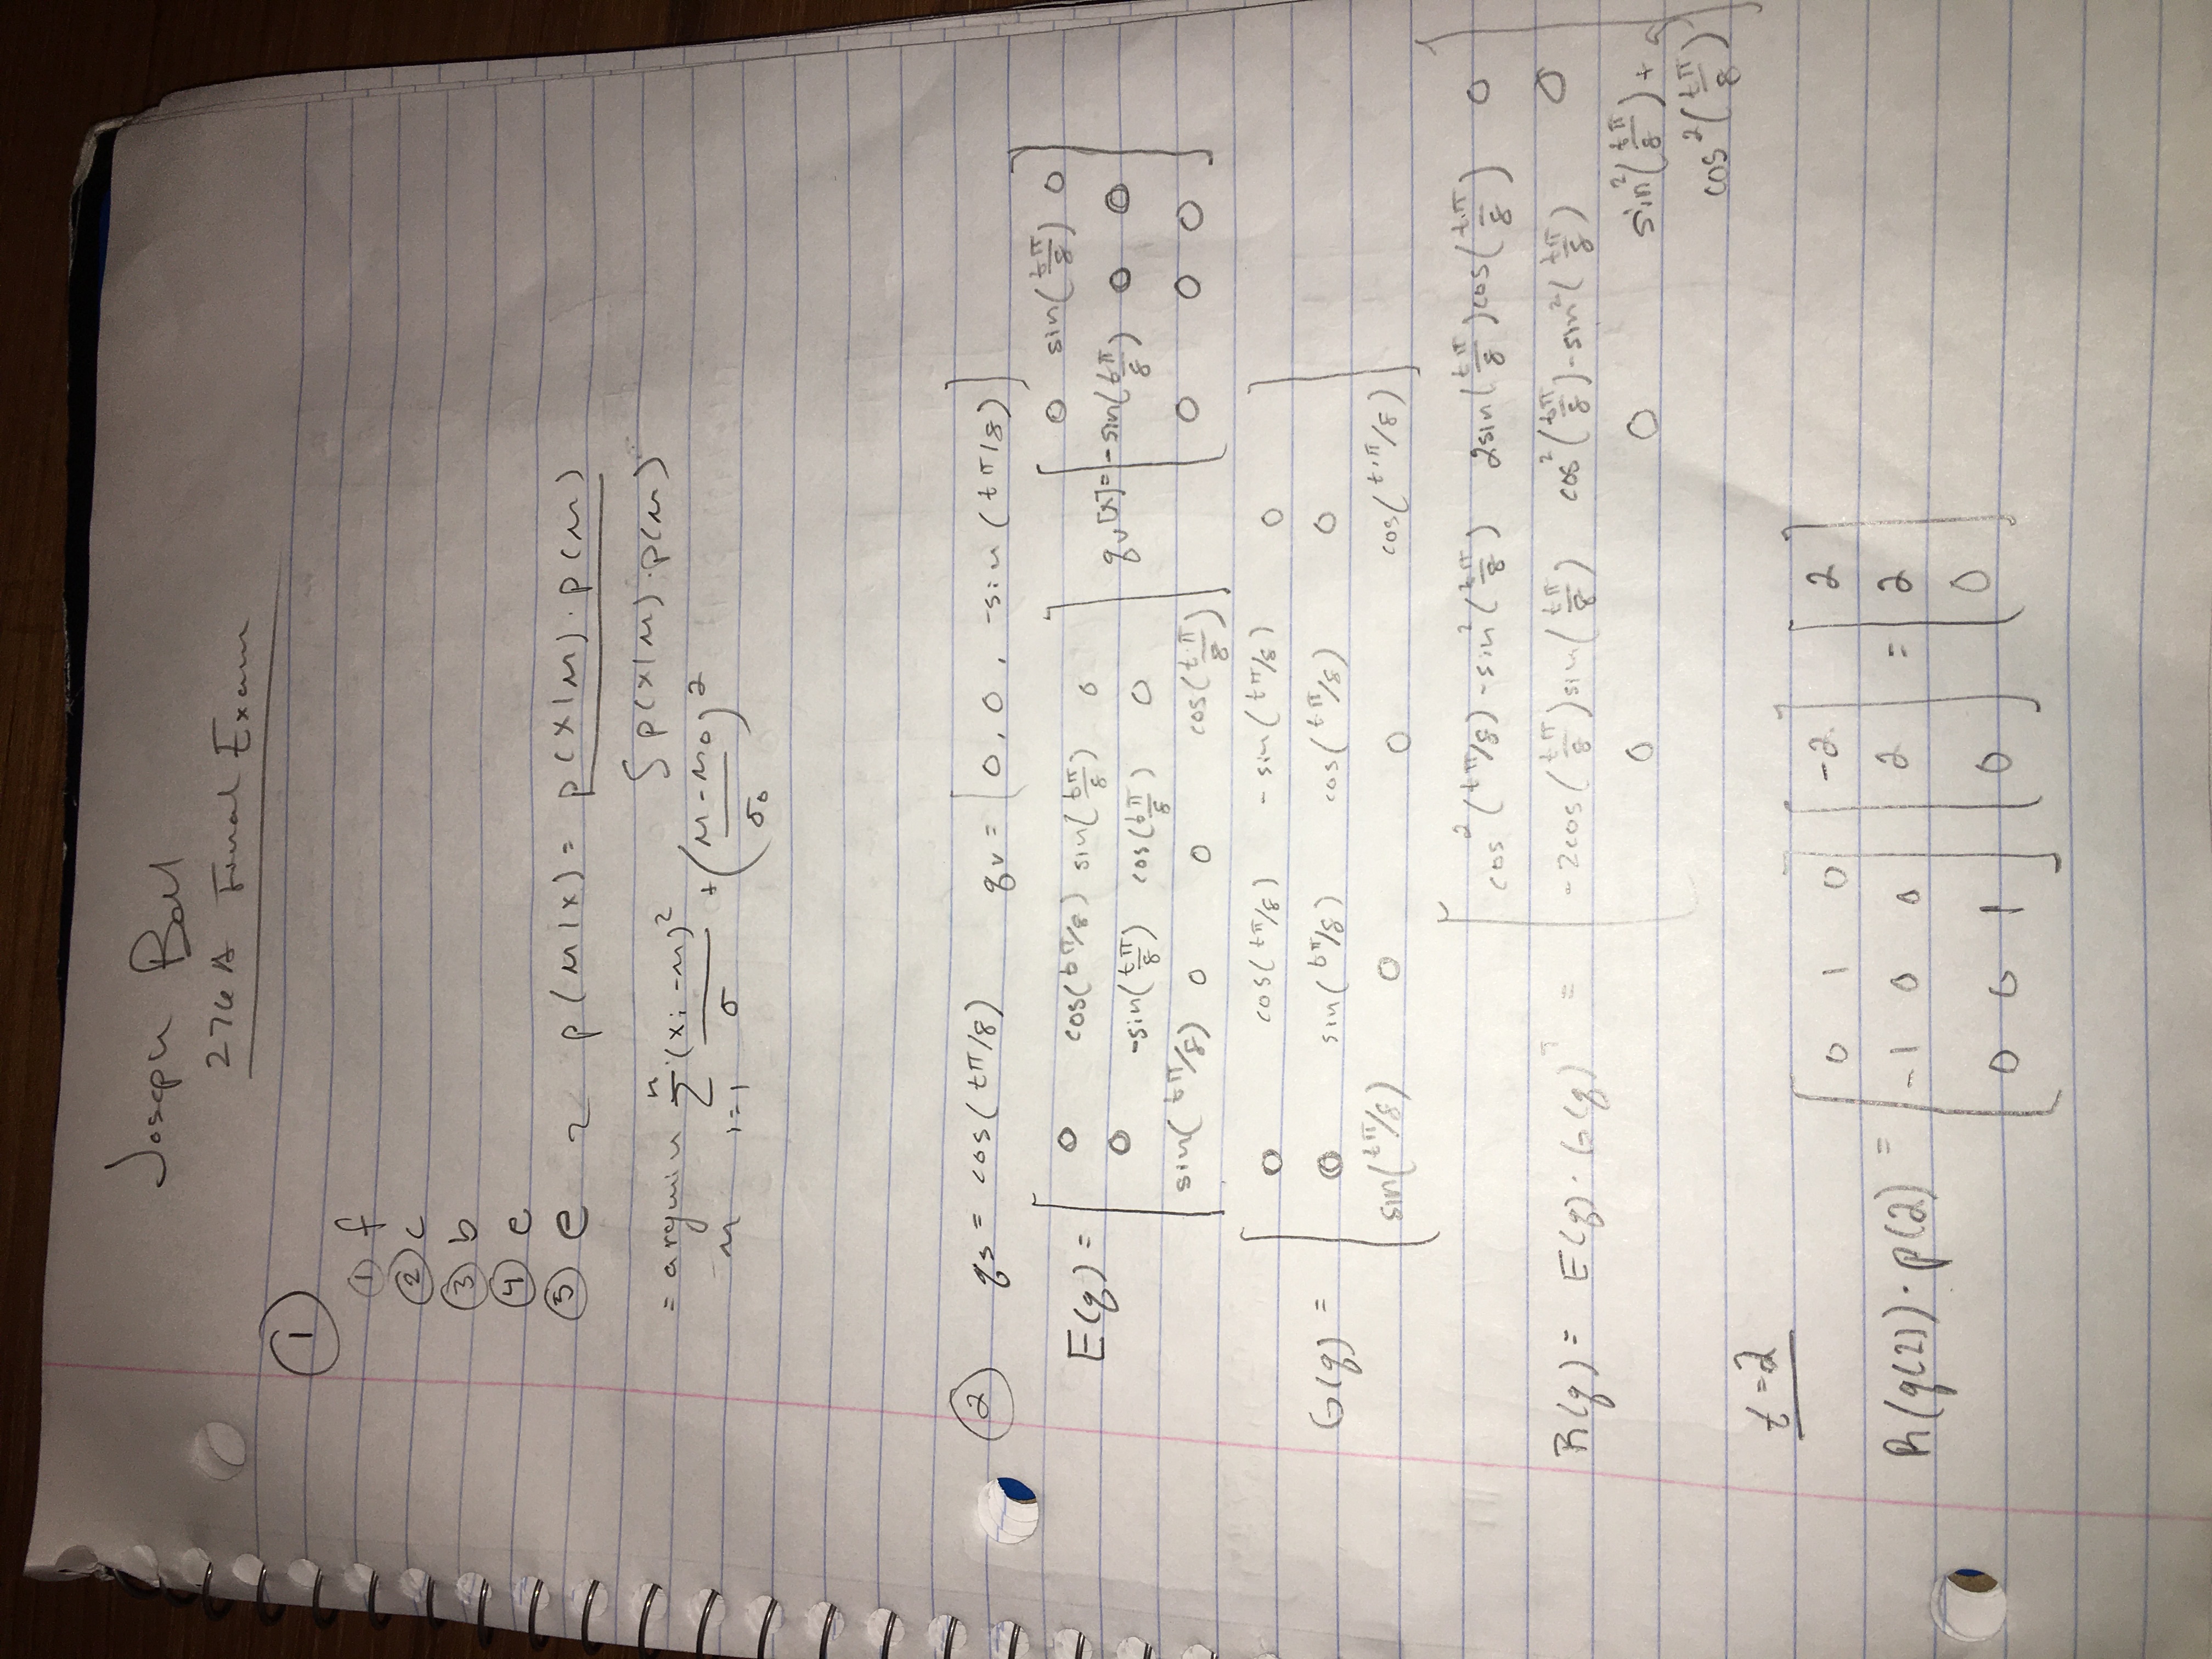 Joseph Ball
276A Final Exam
①
① f
② c
③ b
④ e
⑤ e ~ p(μ|x) = p(x|μ)·p(μ) / ∫p(x|μ)·p(μ)
= argmin_μ Σ_{i=1}^{n} (xi-μ)²/σ + ((μ-μ0)/σ0)²
② qs = cos(tπ/8) qv = [0, 0, -sin(tπ/8)]
E(q) = [0 cos(tπ/8) sin(tπ/8) 0
0 -sin(tπ/8) cos(tπ/8) 0
sin(tπ/8) 0 0 cos(t·π/8)]
qv[x] = [0 sin(tπ/8) 0
-sin(tπ/8) 0 0
0 0 0]
G(q) = [0 cos(tπ/8) -sin(tπ/8) 0
0 sin(tπ/8) cos(tπ/8) 0
sin(tπ/8) 0 0 cos(t·π/8)]
R(q) = E(q)·G(q)ᵀ = [cos²(tπ/8)-sin²(tπ/8) 2sin(tπ/8)cos(t·π/8) 0
-2cos(tπ/8)sin(tπ/8) cos²(tπ/8)-sin²(tπ/8) 0
0 0 sin²(tπ/8)+
cos²(tπ/8)]
t=2
R(q(2))·p(2) = [0 1 0
-1 0 0
0 0 1] [-2
2
0] = [2
2
0]